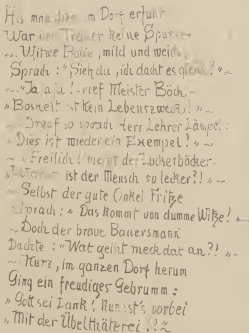 Als man dies im Dorf erfuhr
War von Trauer keine Spur. ~
~. Witwe Bolte, mild und weich,
Sprach: "Sieh da, ich dacht es gleich!" ~
~ "Ja, ja!" rief Meister Böck ~
"Bosheit ist kein Lebenszweck!" ~
~ Drauf so sprach Herr Lehrer Lämpel:
"Dies ist wieder ein Exempel!" ~
~ "Freilich! meint der Zuckerbäcker~
ist der Mensch so lecker?!" ~
~ Selbst der gute Onkel Fritze
Sprach: "Das kommt von dumme Witze! ~
~ Doch der brave Bauersmann
Dachte: "Wat geiht meck dat an?!" ~
~ Kurz, im ganzen Dorf herum
Ging ein freudiges Gebrumm:
"Gott sei Dank! Nun ist's vorbei
"Mit der Übelthäterei!!"~